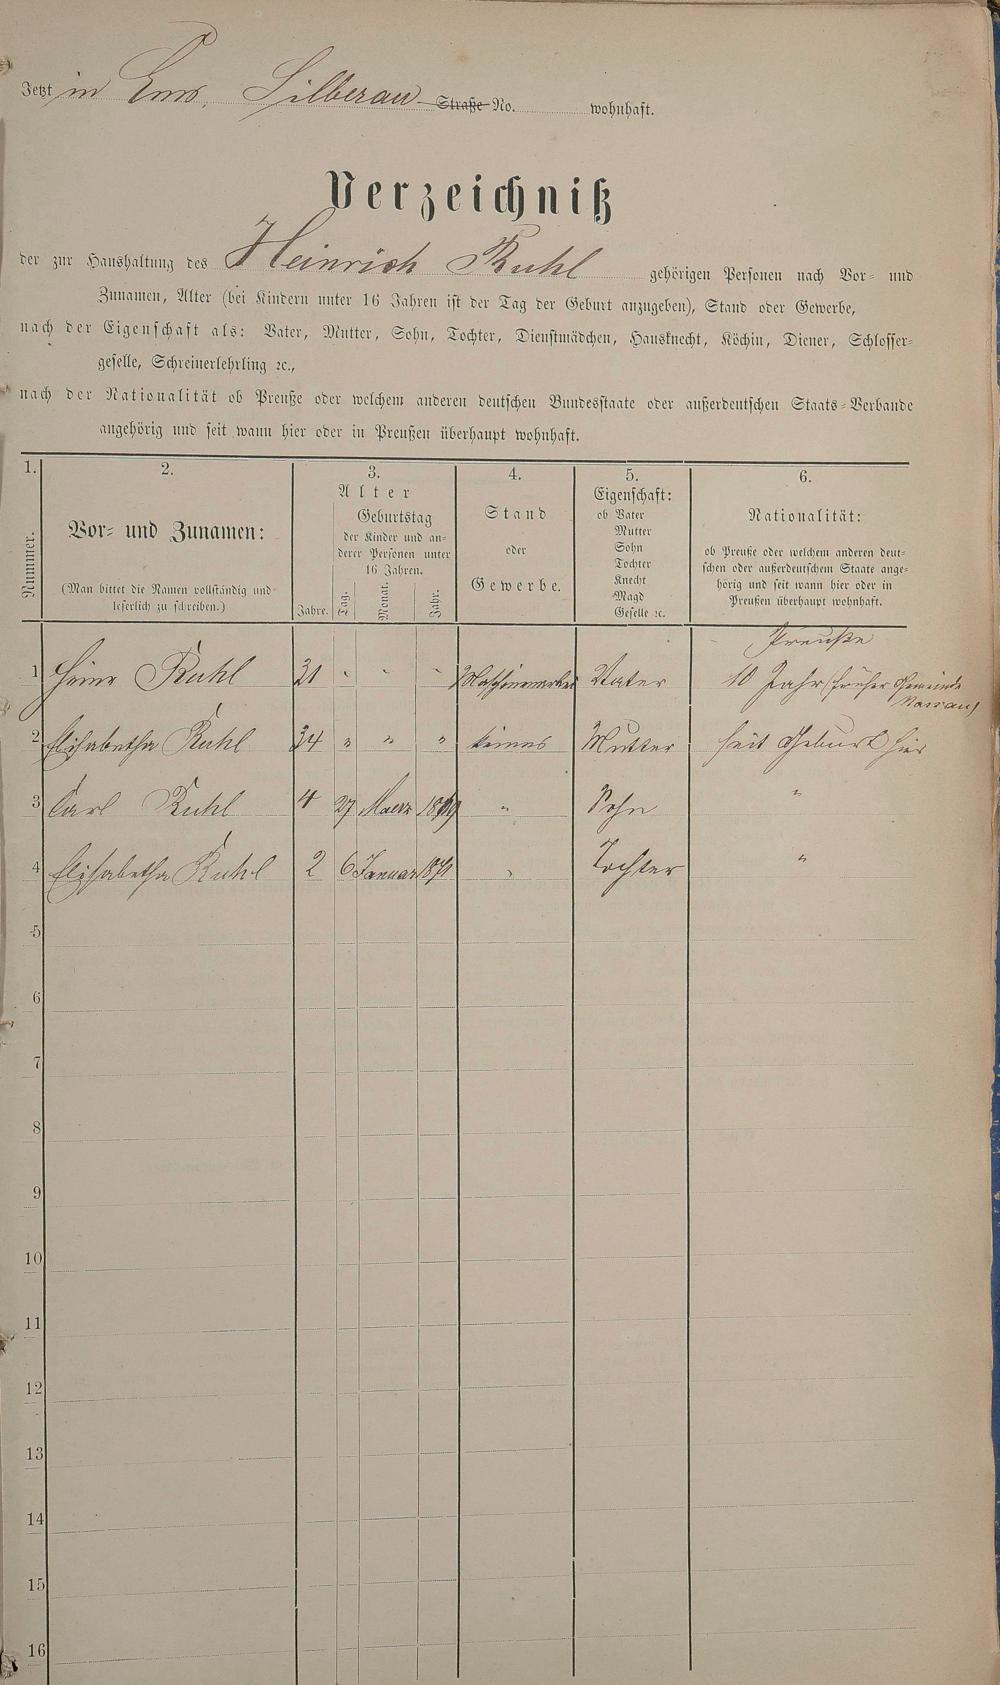 Jetzt in Ems, Silberau Straße No. wohnhaft.
Verzeichniß
der zur Haushaltung des Heinrich Ruhl gehörigen Personen nach Vor- und
Zunamen, Alter (bei Kindern unter 16 Jahren ist der Tag der Geburt anzugeben), Stand oder Gewerbe,
nach der Eigenschaft als: Vater, Mutter, Sohn, Tochter, Dienstmädchen, Hausknecht, Köchin, Diener, Schlosser-
geselle, Schreinerlehrling ꝛc.,
nach der Nationalität ob Preuße oder welchem anderen deutschen Bundesstaate oder außerdeutschen Staats-Verbande
angehörig und seit wann hier oder in Preußen überhaupt wohnhaft.
1. 2. 3. 4. 5. 6.
Nummer.
Vor- und Zunamen:
(Man bittet die Namen vollständig und
leserlich zu schreiben.)
Alter
Geburtstag
der Kinder und an-
derer Personen unter
16 Jahren.
Jahre. Tag. Monat. Jahr.
Stand
oder
Gewerbe.
Eigenschaft:
ob Vater
Mutter
Sohn
Tochter
Knecht
Magd
Geselle ꝛc.
Nationalität:
ob Preuße oder welchem anderen deut-
schen oder außerdeutschem Staate ange-
hörig und seit wann hier oder in
Preußen überhaupt wohnhaft.
Preuße
1 Heinr Ruhl 31 " " " Vater 10 Jahr (früher Gemeinde
Nassau)
2 Elisabetha Ruhl 34 " " " keines Mutter seit Geburt hier
3 Carl Ruhl 4 27 Maerz 1869 " Sohn "
4 Elisabetha Ruhl 2 6 Januar 1871 " Tochter "
5
6
7
8
9
10
11
12
13
14
15
16